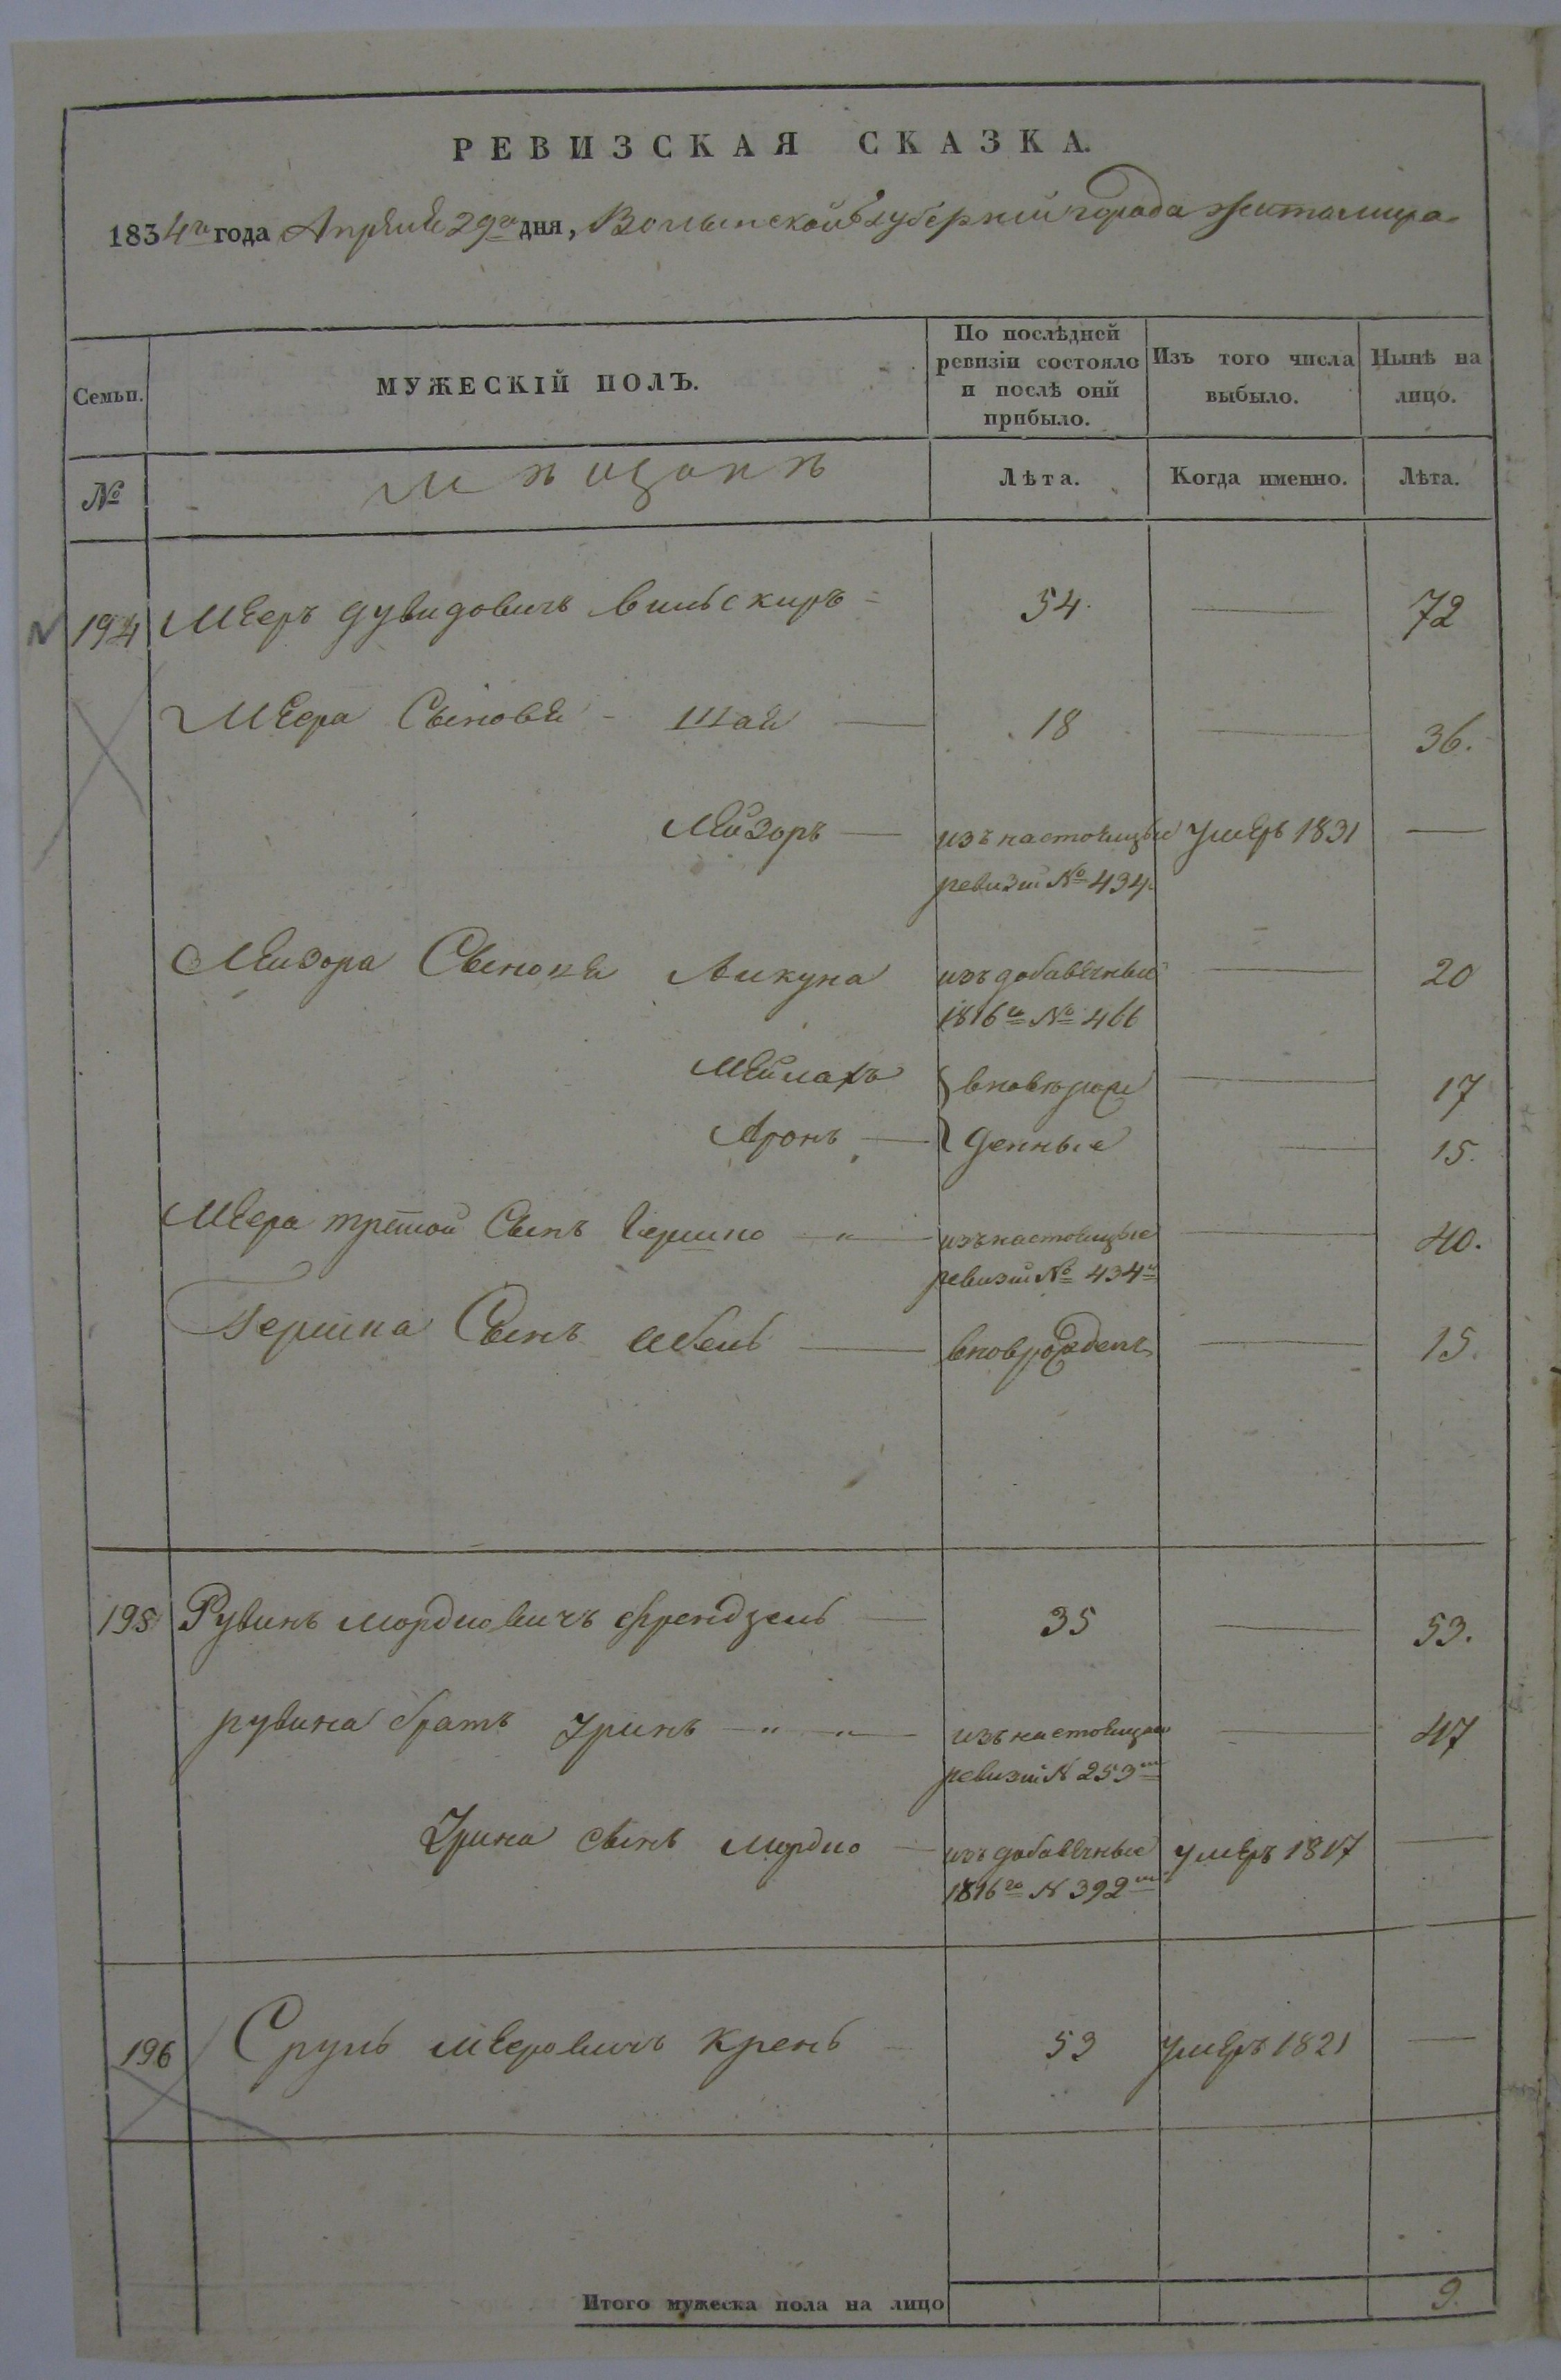 РЕВИЗСКАЯ СКАЗКА.
1834го года Апреля 29го дня, Волынской губерний города житомира
Семьи.
МУЖЕСКІЙ ПОЛЪ.
По послѣдней ревизіи состояло и послѣ оній прибыло.
Изъ того числа выбыло.
Нынѣ на лицо.
№
мѣщанѣ
Лѣта.
Когда именно.
Лѣта.
194 Меер ъ дувидовичъ вильскиръ 54. 72
Меера Сыновя Шая 18 36.
Лейзоръ изъ настоящые умеръ 1831
ревизіи № 434
Лейзора Сыновя Аикуна изъ добавечные 20
1816го № 466
Меилахъ вновърож 17
Аронъ денные 15.
Меера третой Сынъ Гершко изънастоящые 40.
ревизіи № 434й
Гершка Сынъ лебель вноврожденъ 15.
195 Рувинъ мордковичъ френдзель 35 53.
рувина братъ Уринъ изънастоящые 47
ревизіи N 253
Урина сынъ мордко изъ добавечные умеръ 1817
1816го N 392
196 Сруль меровичъ крень 53 умеръ 1821
Итого мужеска пола на лицо 9.